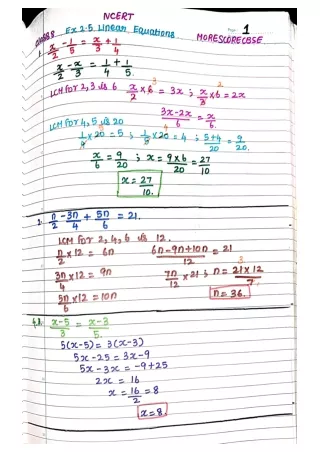 NCERT
CLASS 8 Ex 2.5 Linear Equations 1
MORESCORECBSE
1. x/2 - 1/5 = x/3 + 1/4
x/2 - x/3 = 1/4 + 1/5.
LCM for 2, 3 is 6 x/2 × 6 = 3x ; x/3 × 6 = 2x
3x-2x/6 = x/6.
LCM for 4, 5 is 20
1/4 × 20 = 5 ; 1/5 × 20 = 4 ; 5+4/20 = 9/20.
x/6 = 9/20 ; x = 9×6/20 = 27/10
x = 27/10.
2. n/2 - 3n/4 + 5n/6 = 21.
LCM for 2, 4, 6 is 12.
n/2 × 12 = 6n 6n-9n+10n/12 = 21
3n/4 × 12 = 9n 7n/12 × 21 ; n = 21×12/7
5n/6 × 12 = 10n n = 36.
x-5/3 = x-3/5.
5(x-5) = 3(x-3)
5x-25 = 3x-9
5x-3x = -9+25
2x = 16
x = 16/2 = 8
x = 8.